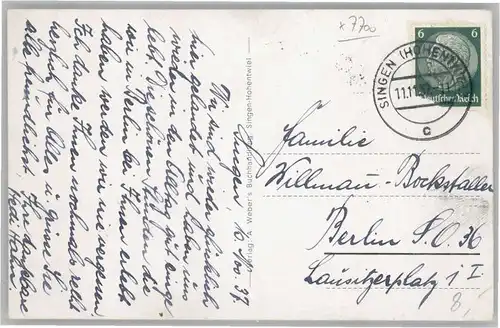 Singen, 10. Nov. 37.
Wir sind wieder glücklich
hier gelandet und haben uns
wieder in den Alltag gut einge-
lebt. Die schönen Stunden die
wir in Berlin bei Ihnen erlebt
haben werden wir nie vergessen.
Ich danke Ihnen nochmals recht
herzlich für Alles u. Grüsse Sie
alle freundlichst, Ihre dankbare
Verlag: A. Weber's Buchhandlung, Singen-Hohentwiel
x 7700
6 6
Deutsches Reich
SINGEN (HOHENTWIEL)
11.11.37
c
Familie
Willmau-Bockstaller
Berlin S.O. 36
Lausitzerplatz 1 I
8,-